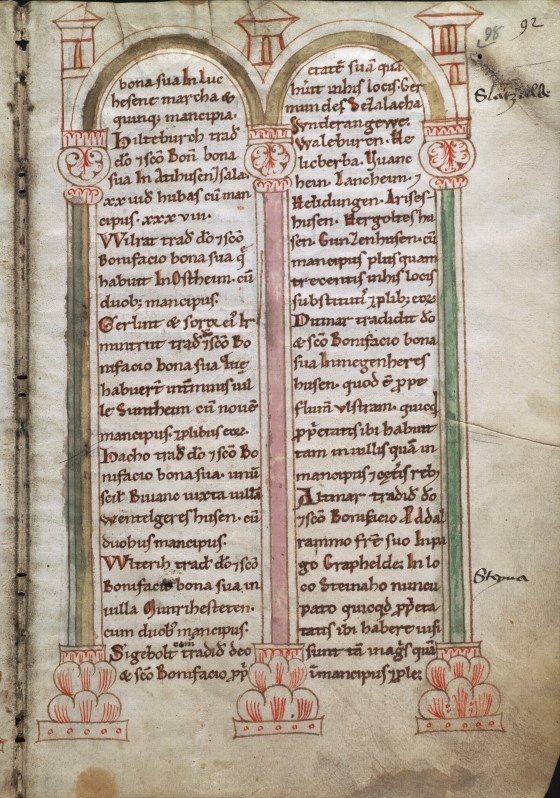 92
98
bona sua In luc
hesene marcha &
quinq; mancipia.
Hilteburch trad
do ⁊ sco Bon bona
sua In Atihusen. sala.
xx uiii hubas cu man
cipiis. xxx viii.
Wilrat trad do ⁊ sco
Bonifacio bona sua q
habuit In Ostheim. cu
duob; mancipiis.
Gerlint & soror ei Ir
mintrut trad do ⁊ sco Bo
nifacio bona sua
habuert uil
le Suntheim cu noue
mancipiis. ⁊ plibus eor.
Hacho trad do ⁊ sco Bo
nifacio bona sua. unu
scil Biuanc iuxta uilla
Wentelgeres husen. cu
duobus mancipiis.
Witerih trad do ⁊ sco
Bonifacio bona sua in
uilla
cum duob; mancipiis.
Sigebolt tradid deo
& sco Bonifacio pp
ctate sua qua
hut in his locis. Ger
mundes. Selalacha
Synderangewe.
Waleburen. He
licberba. Huanc
hein. Lancheim. ⁊
Helidungen. Arises
husen. Hergoltes hu
sen. Gunzenhusen. cu
mancipiis plus quam
trecentis in his locis
substituti ⁊ plib; eor
Ditmar tradidit do
& sco Bonifacio bona
sua In megenheres
husen. quod e ppe
flum Vlstram. quicqd
pptatis ibi habuit
tam in uillis qua in
mancipiis ⁊ cetis reb;
Altmar tradid do
⁊ sco Bonifacio Addal
rammo fre suo In pa
go Graphelde. In lo
co Steinaho nuncu
pato quicqd ppeta
tatis ibi habere uisi
sunt ta in agis qua
in mancipiis ⁊ ple;